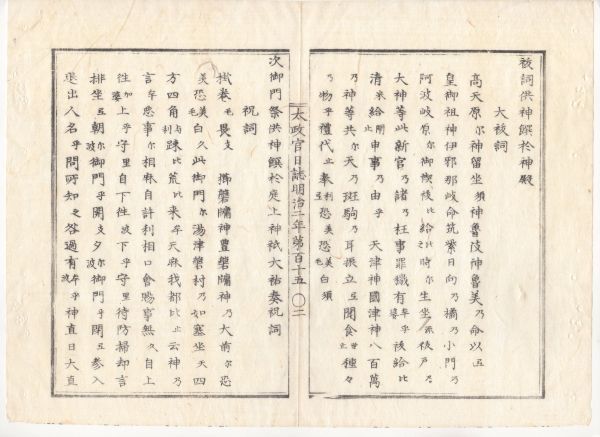 祓詞供神饌於神殿
大祓詞
高天原尓神留坐須神魯岐神魯美乃命以弖
皇御祖神伊邪那岐命筑紫日向乃橘乃小門乃
阿波岐原尓御禊祓比給比之時尓生坐流祓戸乃
大神等此新官乃諸乃枉事罪穢有乎婆祓給比
清米給閇申事乃由乎天津神國津神八百萬
乃神等共尓天乃斑駒乃耳振立弖聞食世種々
乃物乎禮代止奉利弖恐美恐美毛白須
太政官日誌明治二年第百十五〇二
次御門祭供神饌於庭上神祇大祐奏祝詞
祝詞
掛巻毛畏支櫛磐牖神豊磐牖神乃大前尓恐
美恐美毛白久此御門尓湯津磐村乃如塞坐天四
方四角与利疎比荒比来牟天麻我都比止云神乃
言牟悪事尓相麻自許利相口會賜事無久自上
往加婆上乎守里自下往加波下乎守里待防掃却言
排坐弖朝尓波御門乎開支夕尓波御門乎閇弖参入
退出人名乎問所知之咎過有牟乎波神直日大直